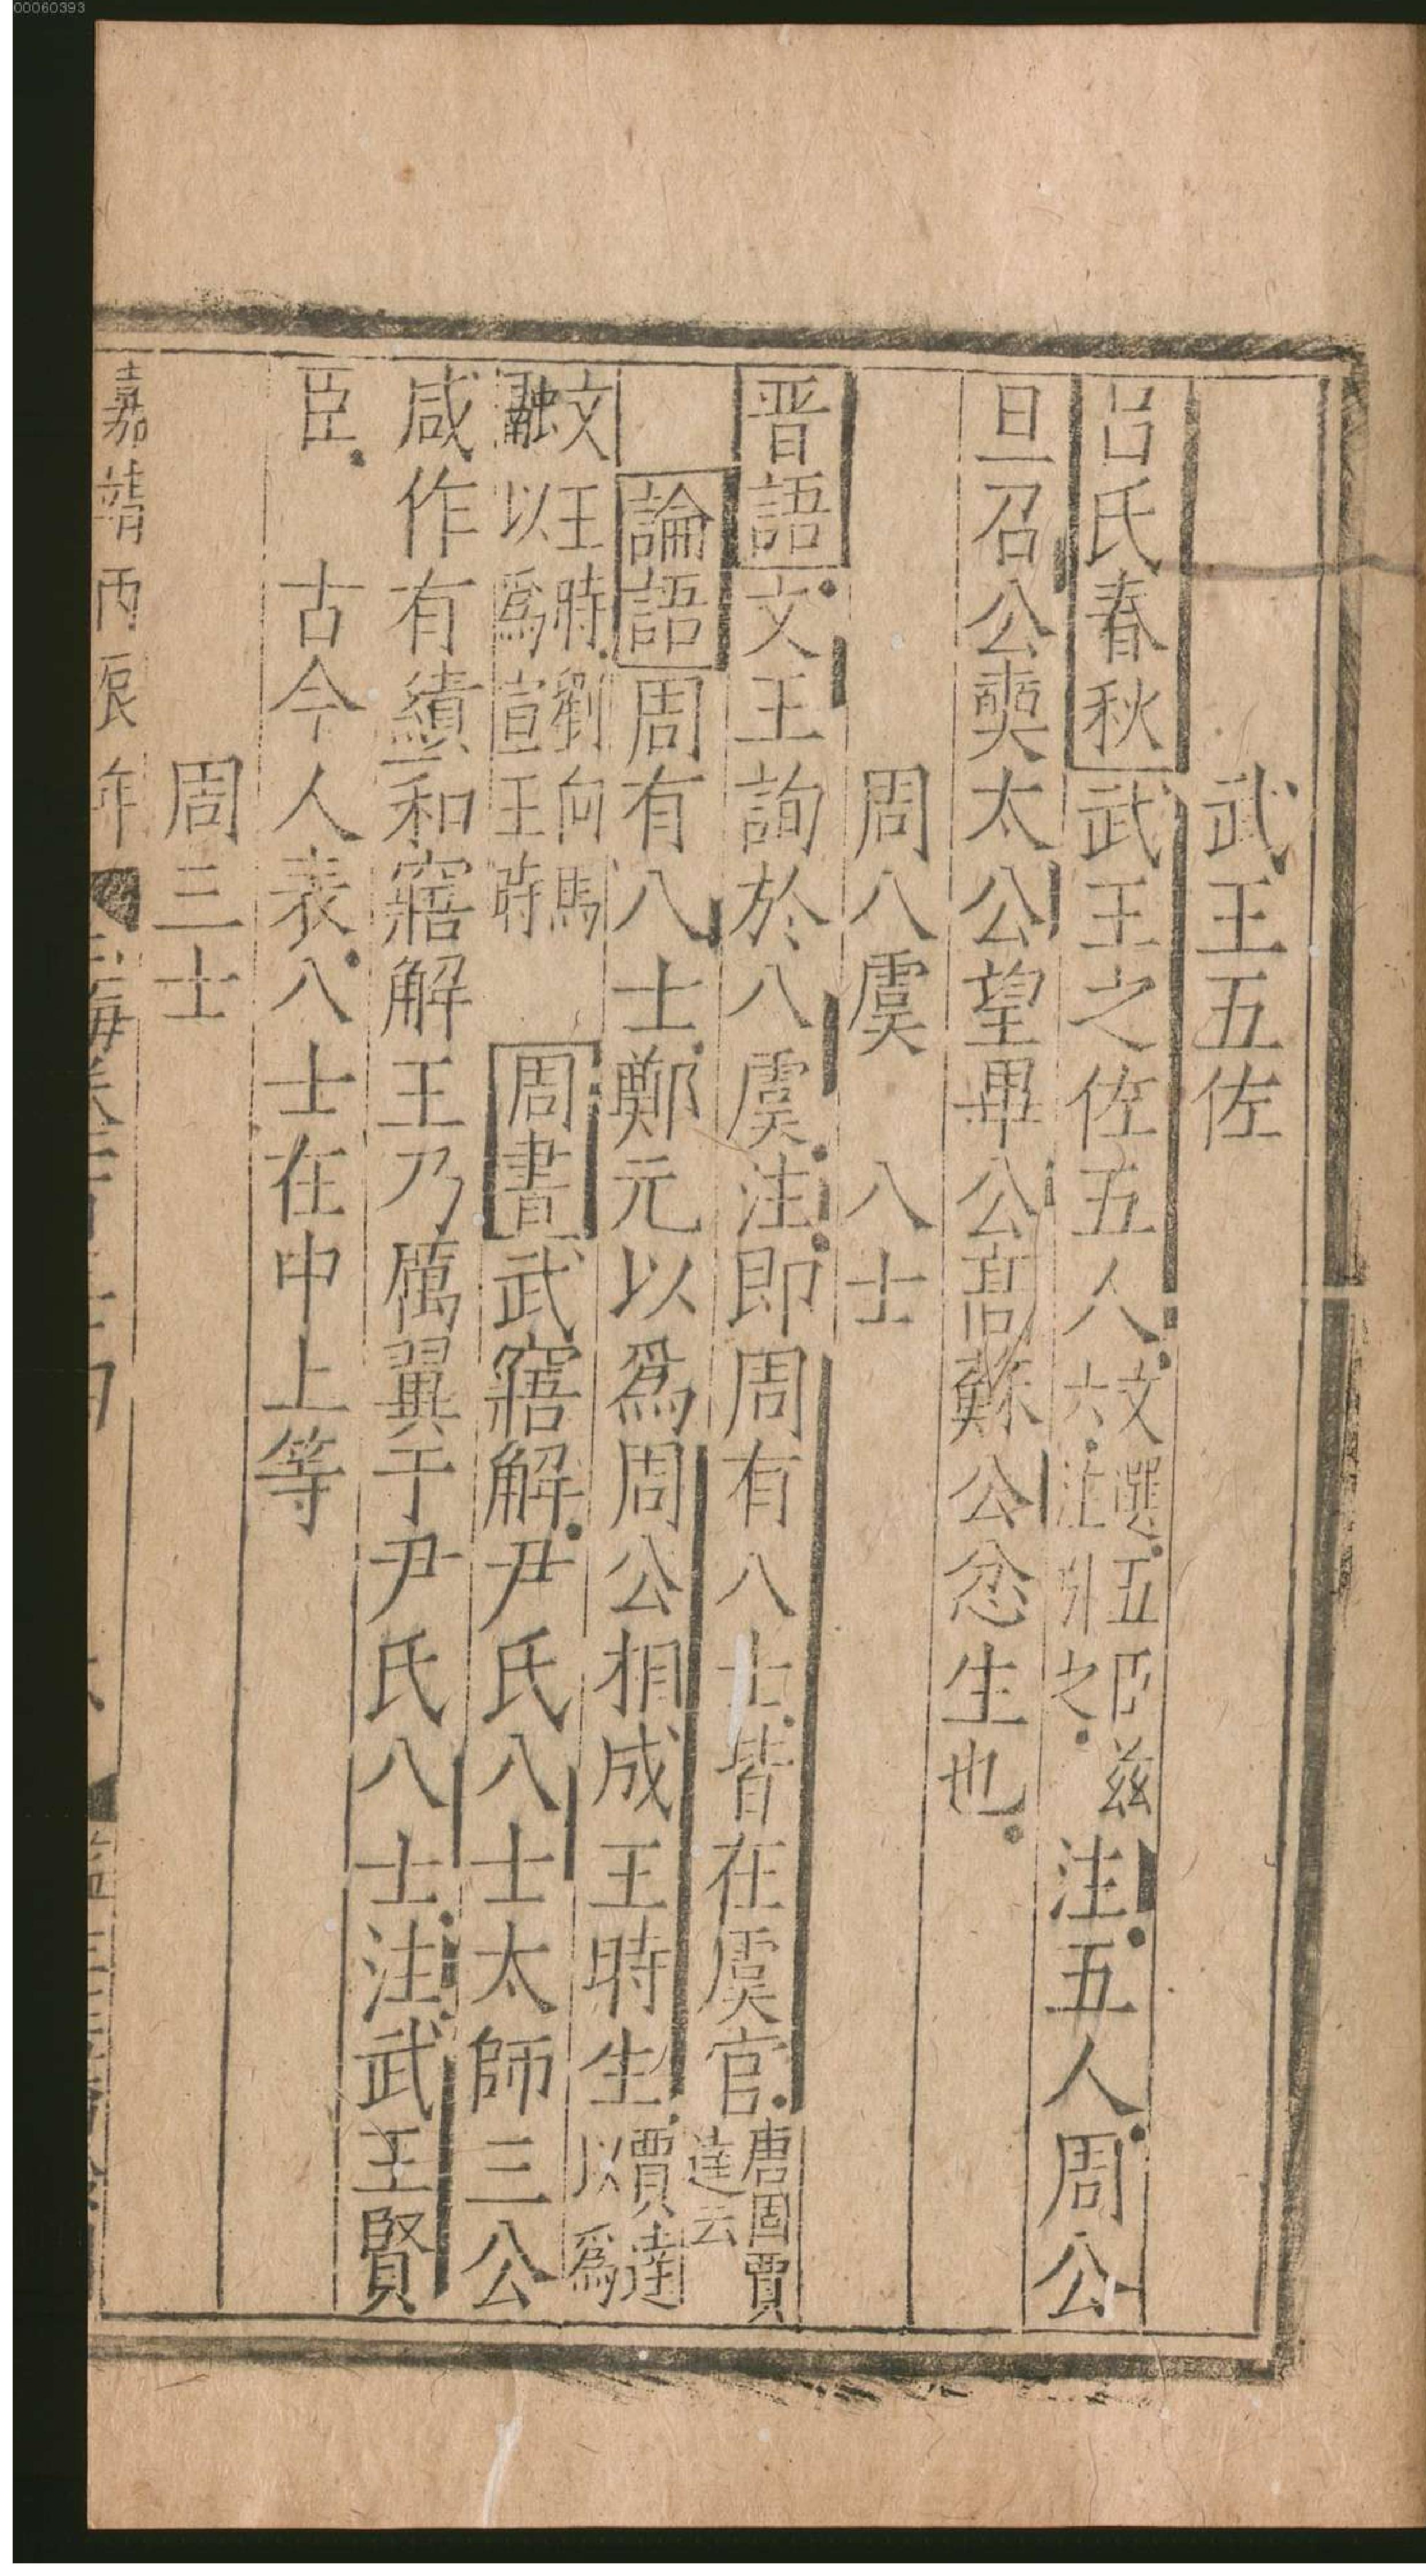 00060393
武王五佐
吕氏春秋武王之佐五人文選五臣兹六注引之注五人周公
旦召公奭太公望畢公髙蘇公忿生也
周八虞　八士
晋語文王詢於八虞注即周有八士皆在虞官唐固賈逹云
論語周有八士鄭元以爲周公相成王時生賈逹以爲
文王時劉向馬融以爲宣王時　周書武寤解尹氏八士太師三公
咸作有績和寤解王乃厲翼于尹氏八士注武王賢
臣　古今人表八士在中上等
周三士
嘉靖丙辰年